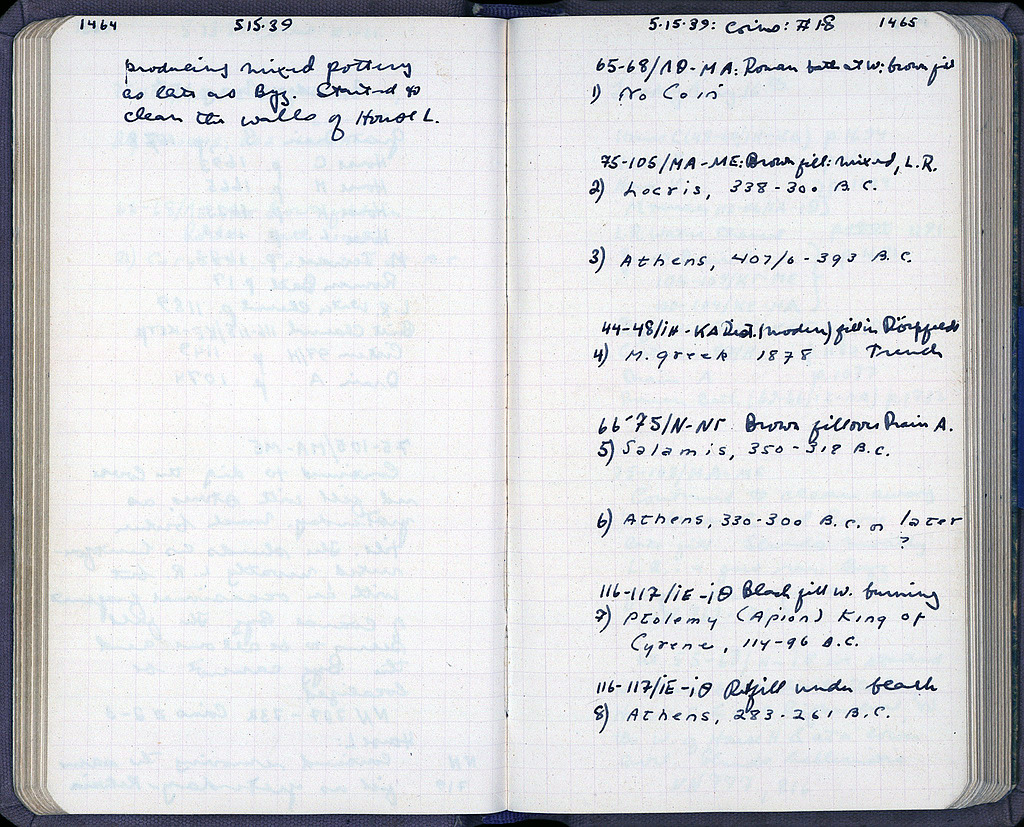 1464
5.15.39
producing mixed pottery
as late as Byz. Started to
clean the walls of House L.
5.15.39: Coins: #18
1465
65-68/ΛΘ-MA: Roman bath at W: brown fill
1) No Coin
75-105/MA-ME: Brown fill: mixed, L.R.
2) Locris, 338-300 B.C.
3) Athens, 407/6-393 B.C.
44-48/ΙΗ-ΚΑ Dist. (modern) fill in Dörpfeld's
4) M. Greek 1878 Trench
66-75/N-NΓ Brown fill over Drain A.
5) Salamis, 350-318 B.C.
6) Athens, 330-300 B.C. or later
?
116-117/ιΕ-ιΘ Black fill w. burning
7) Ptolemy (Apion) King of
Cyrene, 114-96 B.C.
116-117/ιΕ-ιΘ fill under black
8) Athens, 283-261 B.C.